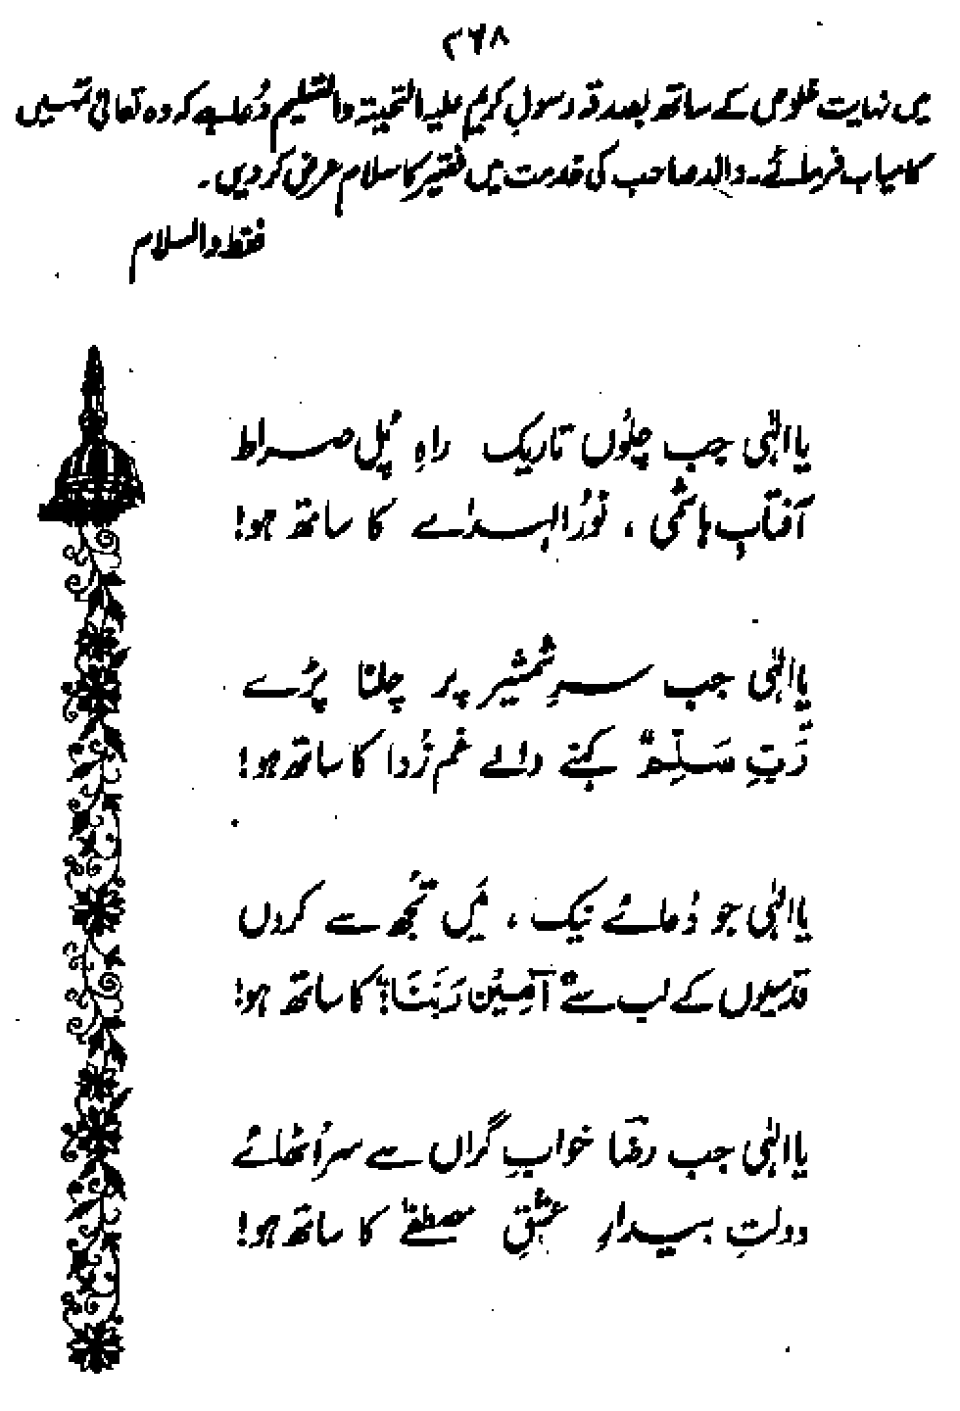 ۲۶۸
میں نہایت خلوص کے ساتھ بصدقہ رسولِ کریم علیہ التحیۃ والتسلیم دُعا ہے کہ وہ تعالیٰ تمہیں
کامیاب فرمائے۔ والد صاحب کی خدمت میں فقیر کا سلام عرض کر دیں۔
فقط والسلام
یا الٰہی جب چلوں تاریک راہِ پُل صراط
آفتابِ ہاشمی ، نورُ الہدٰے کا ساتھ ہو!
یا الٰہی جب سرِ شمشیر پر چلنا پڑے
رَبِّ سَلِّمْ کہنے والے غم زُدا کا ساتھ ہو!
یا الٰہی جو دُعائے نیک ، مَیں تجھ سے کروں
قدسیوں کے لب سے "آمِیْن رَبَّنَا" کا ساتھ ہو!
یا الٰہی جب رضؔا خوابِ گراں سے سر اُٹھائے
دولتِ بیدارِ عشقِ مصطفٰے کا ساتھ ہو!